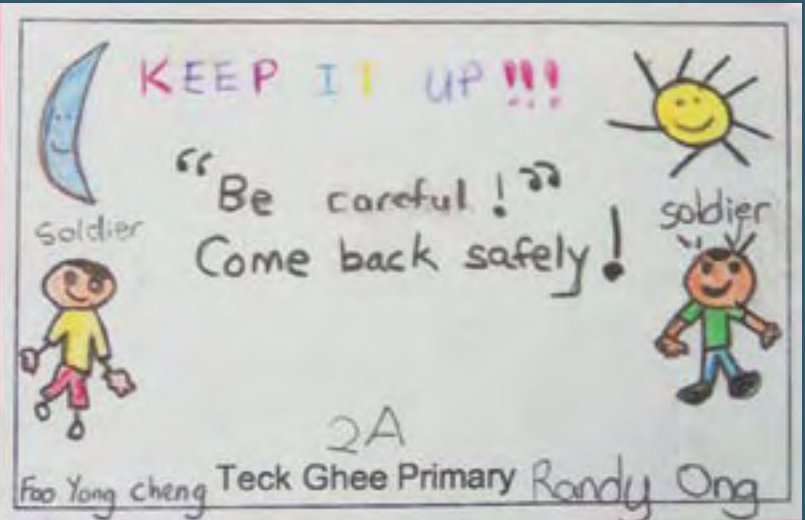 KEEP IT UP!!!
"Be careful!"
Come back safely!
soldier
soldier
2A
Foo Yong cheng Teck Ghee Primary Randy Ong